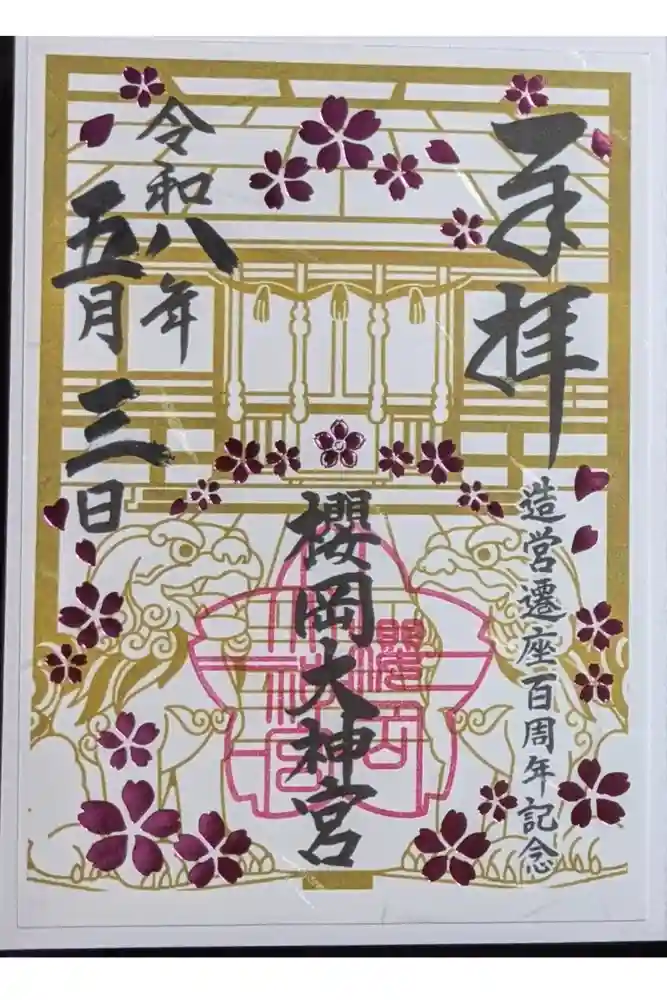 奉拝
造営遷座百周年記念
櫻岡大神宮
櫻岡
大神宮
令和八年
五月三日